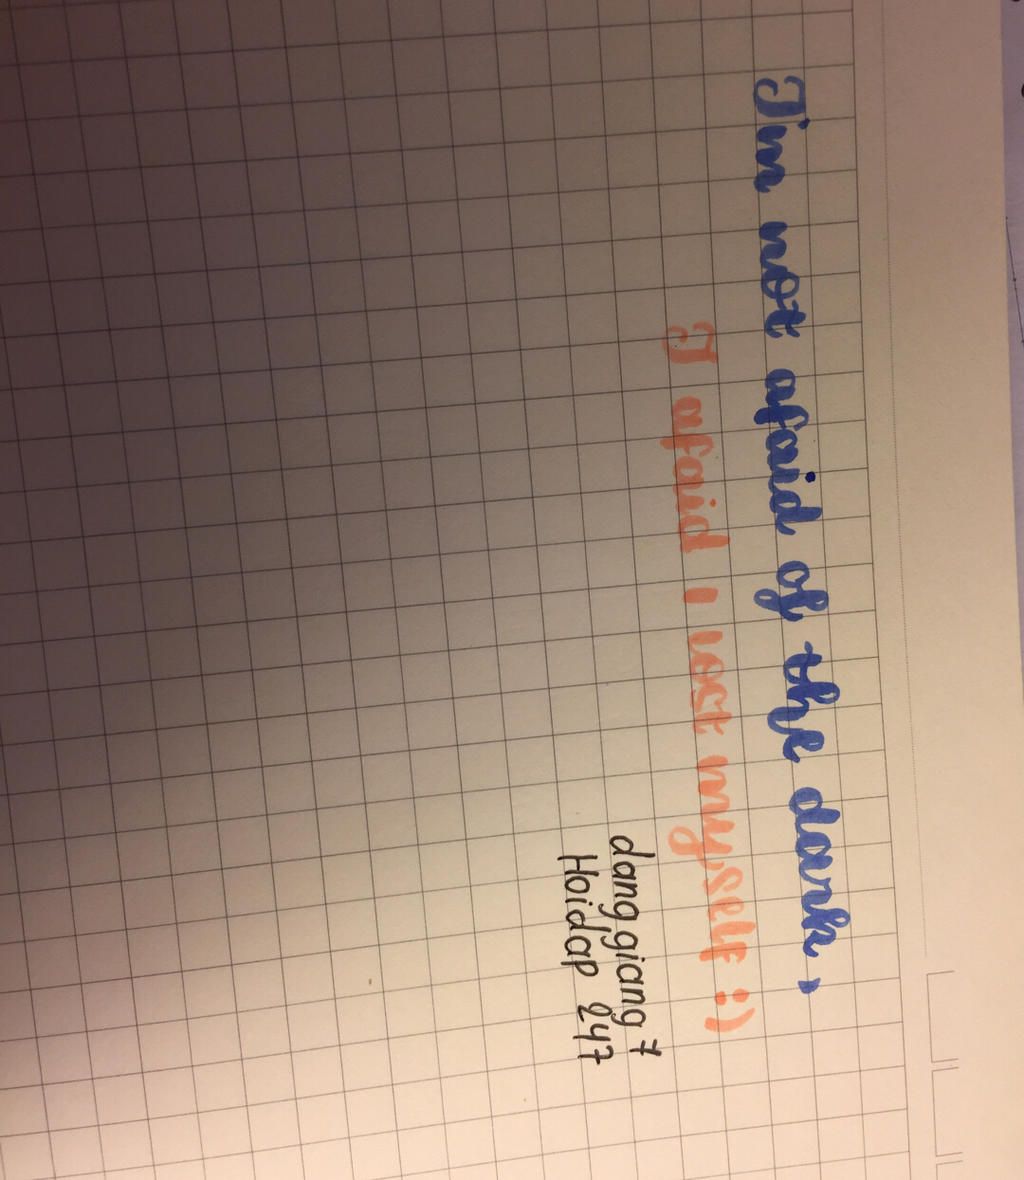 I'm not afaid of the dark,
I afaid i lost myself :)
danggiang7
Hoidap 247